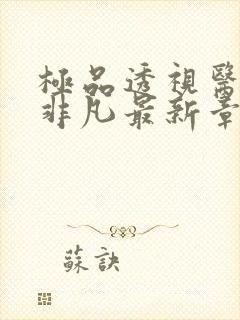 極品透視醫
非凡最新章
蘇訣